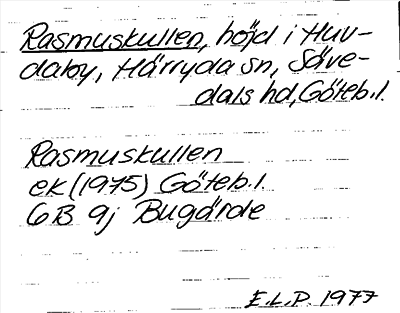 Rasmuskullen, höjd i Huv-
daby, Härryda sn, Säve-
dals hd, Göteb.l.
Rasmuskullen
ek (1975) Göteb.l.
6B 9j Bugärde
E.L.P. 1977